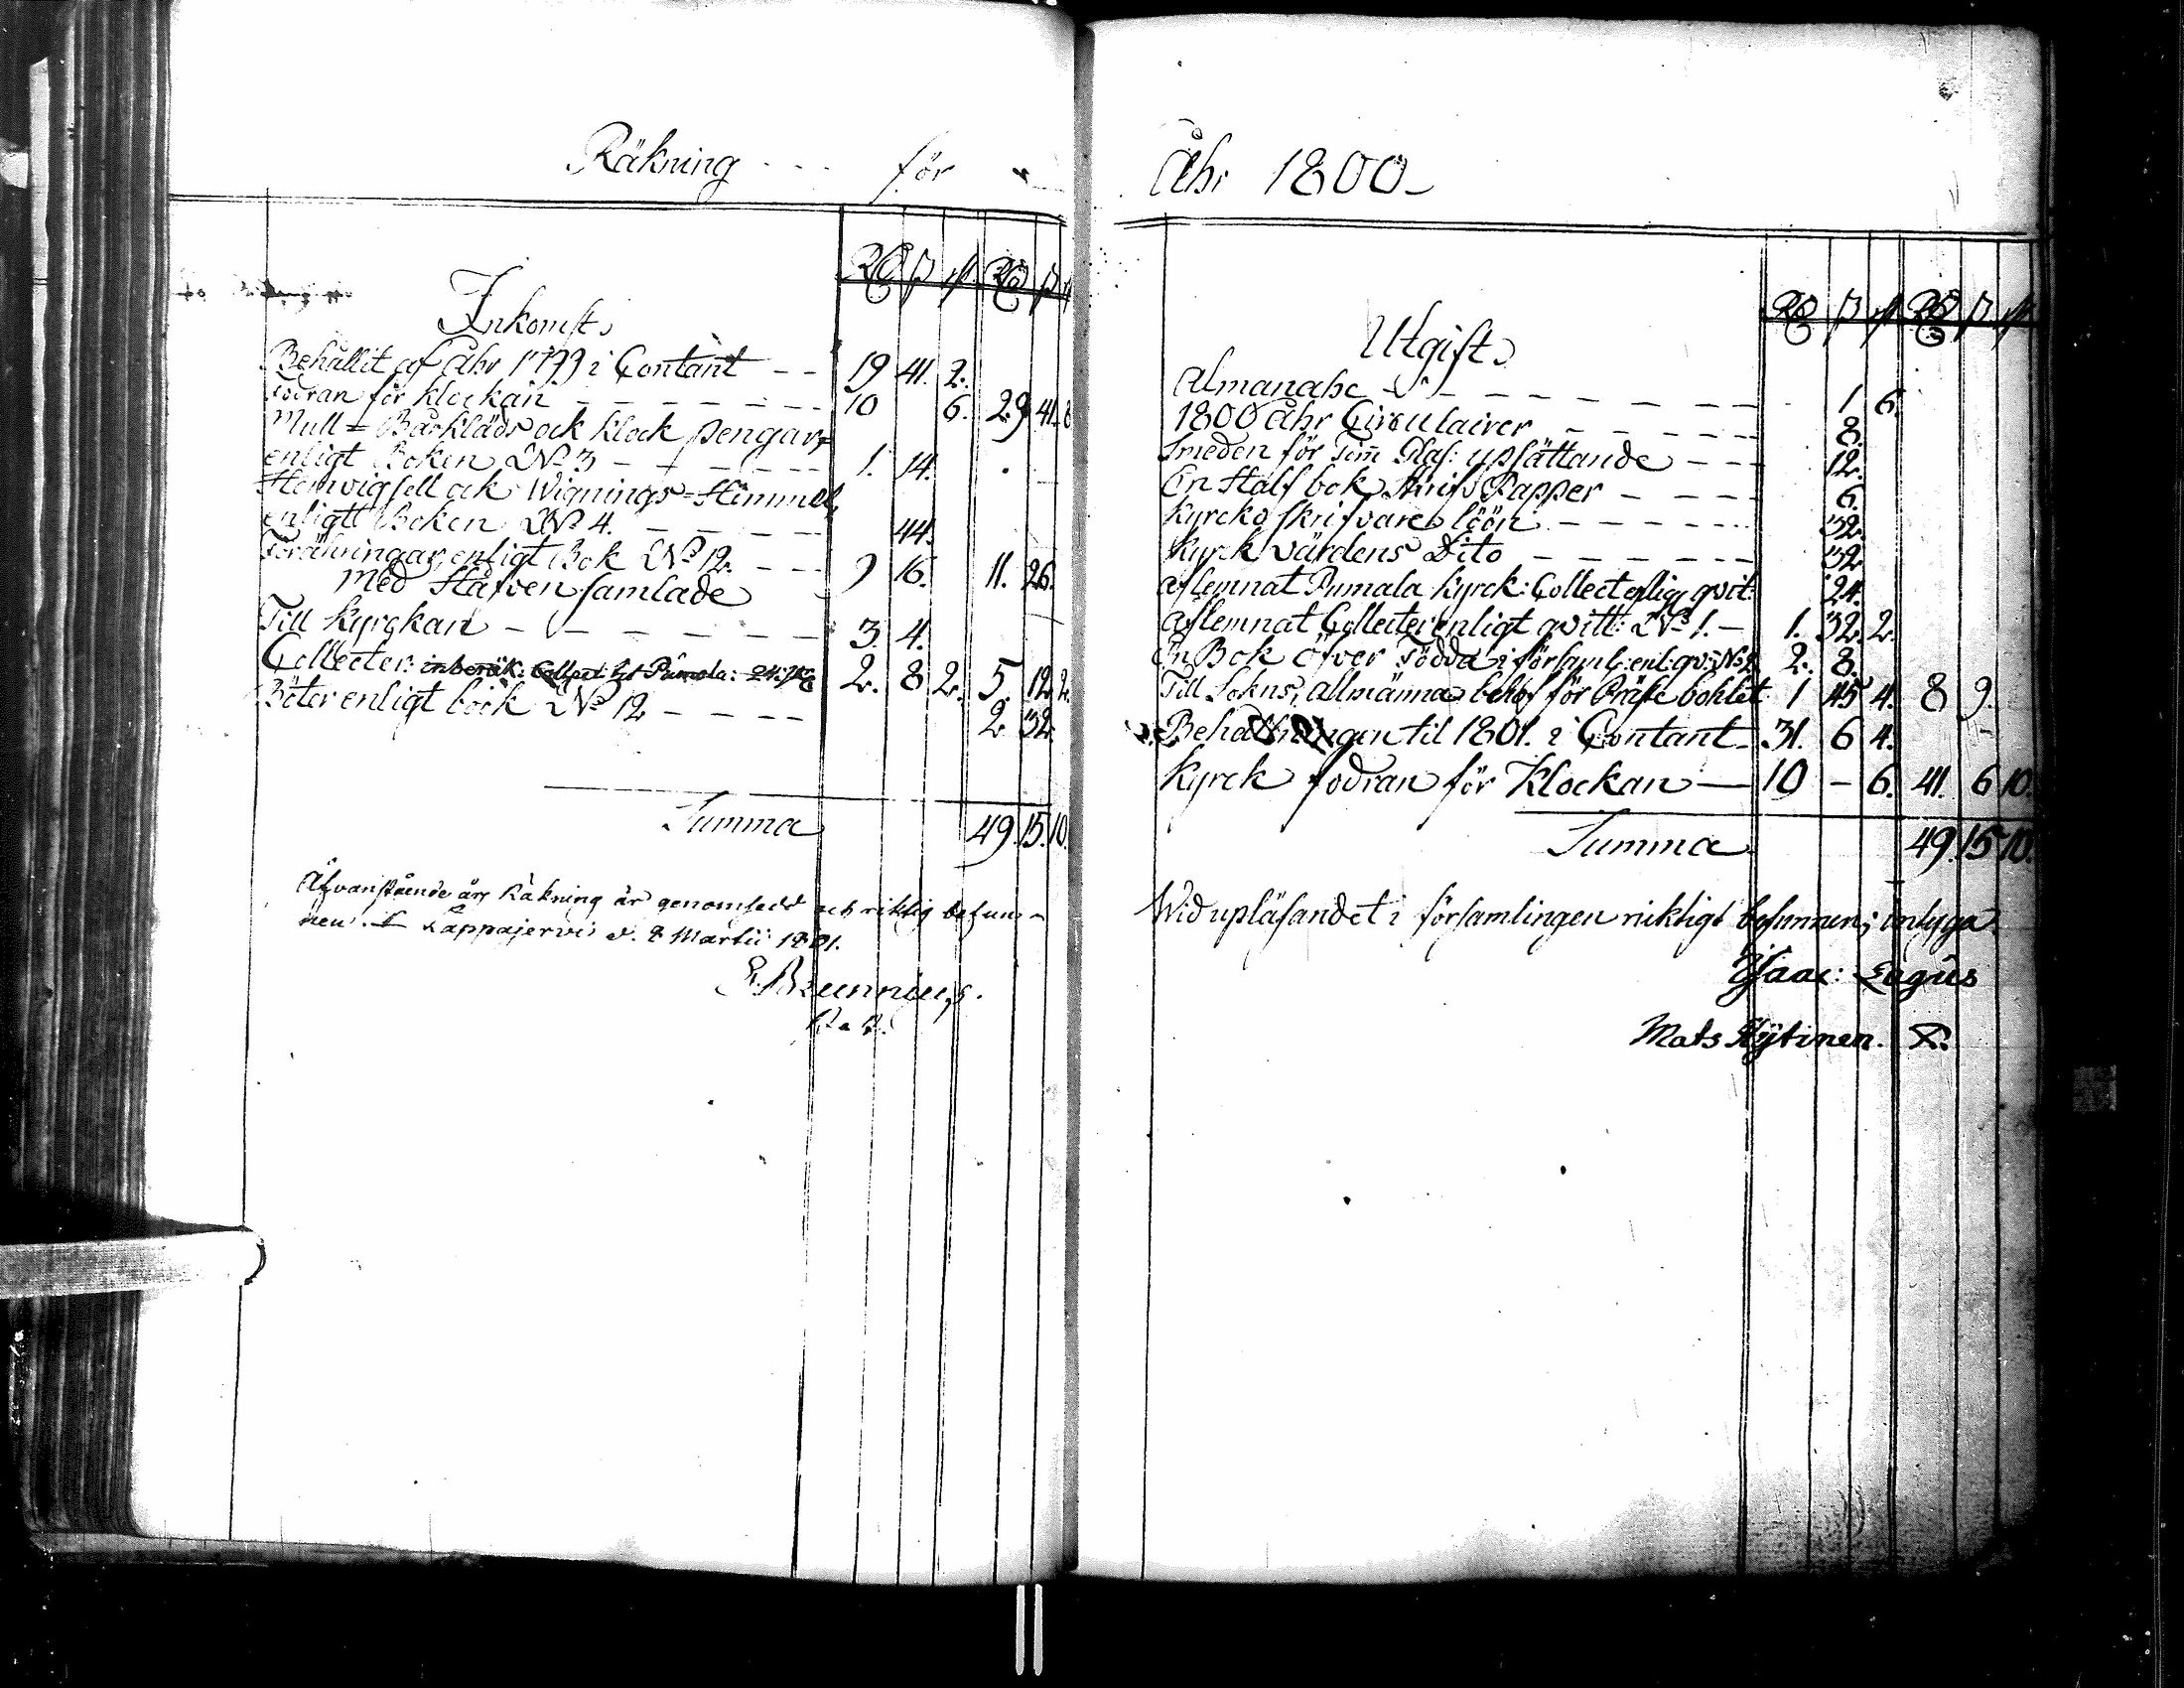 Räkning för
Inkomst
Rd ß rst Rd ß
Behållit af Åhr 1799 i Contant 19 41. 2.
Fodran för klockan 10 6. 29 41. 8
Mull= Bårkläds ock klock pengar
enligt Boken No 3 1. 14.
ock Wignings=
enligtt Boken No 4. 44.
Förähringar, enligt Bok No 12. 9 16. 11. 26.
Med Håfven samlade
Till kyrckan 3. 4.
Collecter: inberäk: Collect. til Pumala: 24: 2. 8 2. 5. 12. 2.
Böter enligt bock No 12 2. 32.
Summa 49. 15. 10.
Åfvanstående års Räkning är genomsedd och riktig befun-
nen. Lappajervi d. 8 Martii 1801.
Brunnius.
Åhr 1800
Utgift
Rd ß rst Rd ß rst
Almanahc 1 6.
1800 Åhr Circulairer 8.
Smeden för Tim Glas: upsättande 12.
En Half bok Skrif Papper 6.
Kyrcko skrifvares löön 32.
Kyrck värdens Dito 32
aflemnat Pumala kyrck: Collect enligt qvit: 24.
aflemnat Collecter enligt qvitt: No 1. 1. 32. 2.
En Bok öfver Födda i församl: enl: qv: No 2 2. 8.
Till Sokns, allmänna behof för Präste bohlet 1 45 4. 8 9.
Behållningen til 1801. i Contant 31. 6 4.
Kyrck fodran för Klockan 10 - 6. 41. 6 10.
Summa 49. 15 10.
Wid upläsandet i församlingen riktigt befunnen; intyga
Isaac: Lagus
Mats Hytinen.